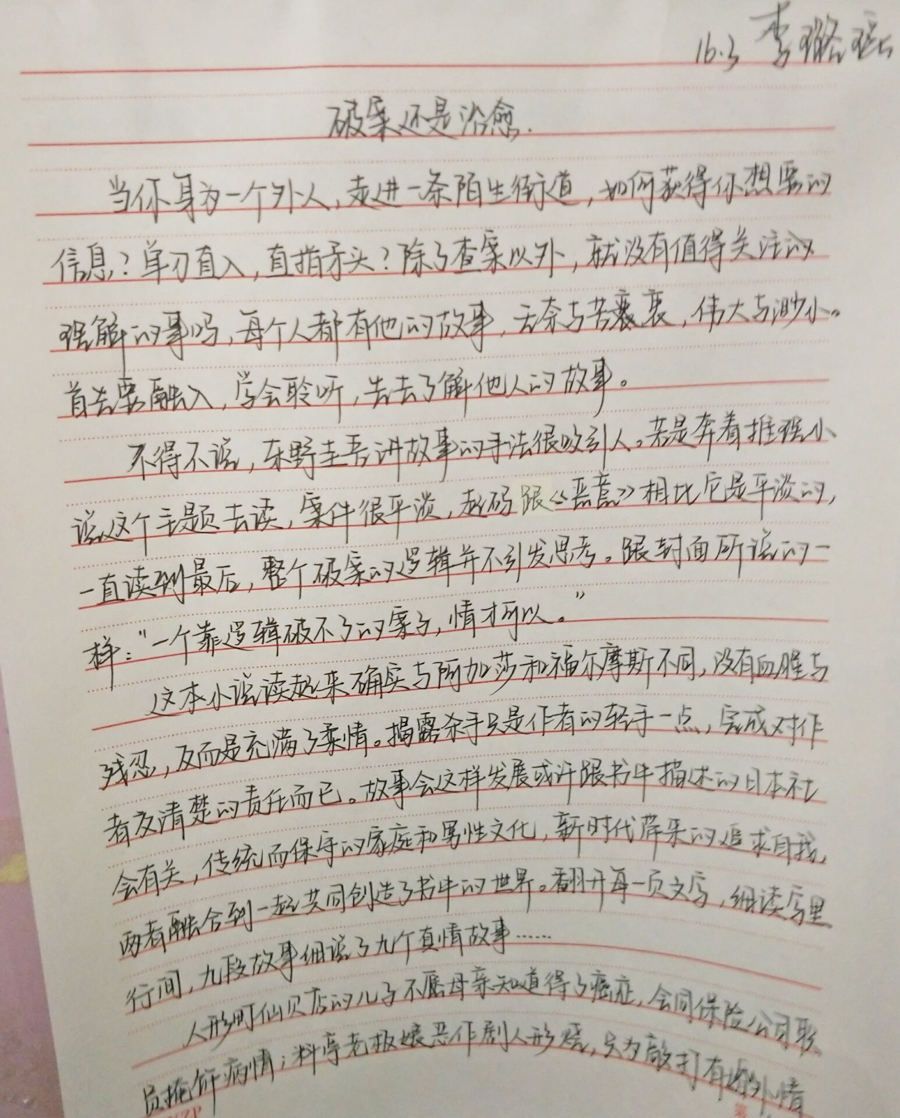 16.3 李璐瑶
破案还是治愈.
当你身为一个外人,走进一条陌生街道,如何获得你想要的
信息?单刀直入,直指矛头?除了查案以外,就没有值得关注的
理解的事吗,每个人都有他的故事,无奈与苦衷,伟大与渺小。
首先要融入,学会聆听,先去了解他人的故事。
不得不说,东野圭吾讲故事的手法很吸引人。若是奔着推理小
说这个主题去读,案件很平淡,起码跟《恶意》相比它是平淡的,
一直读到最后,整个破案的逻辑并不引发思考。跟封面所说的一
样:"一个靠逻辑破不了的案子,情才可以。"
这本小说读起来确实与阿加莎和福尔摩斯不同,没有血腥与
残忍,反而是充满了柔情。揭露杀手只是作者的轻手一点,完成对作
者交清楚的责任而已。故事会这样发展或许跟书中描述的日本社
会有关,传统而保守的家庭和男性文化,新时代带来的追求自我,
两者融合到一起共同创造了书中的世界。翻开每一页文字,细读字里
行间,九段故事细说了九个真情故事……
人形町仙贝店的儿子不愿母亲知道得了癌症,会同保险公司职
员掩饰病情;料亭老板娘恶作剧人形烧,只为敲打有外情